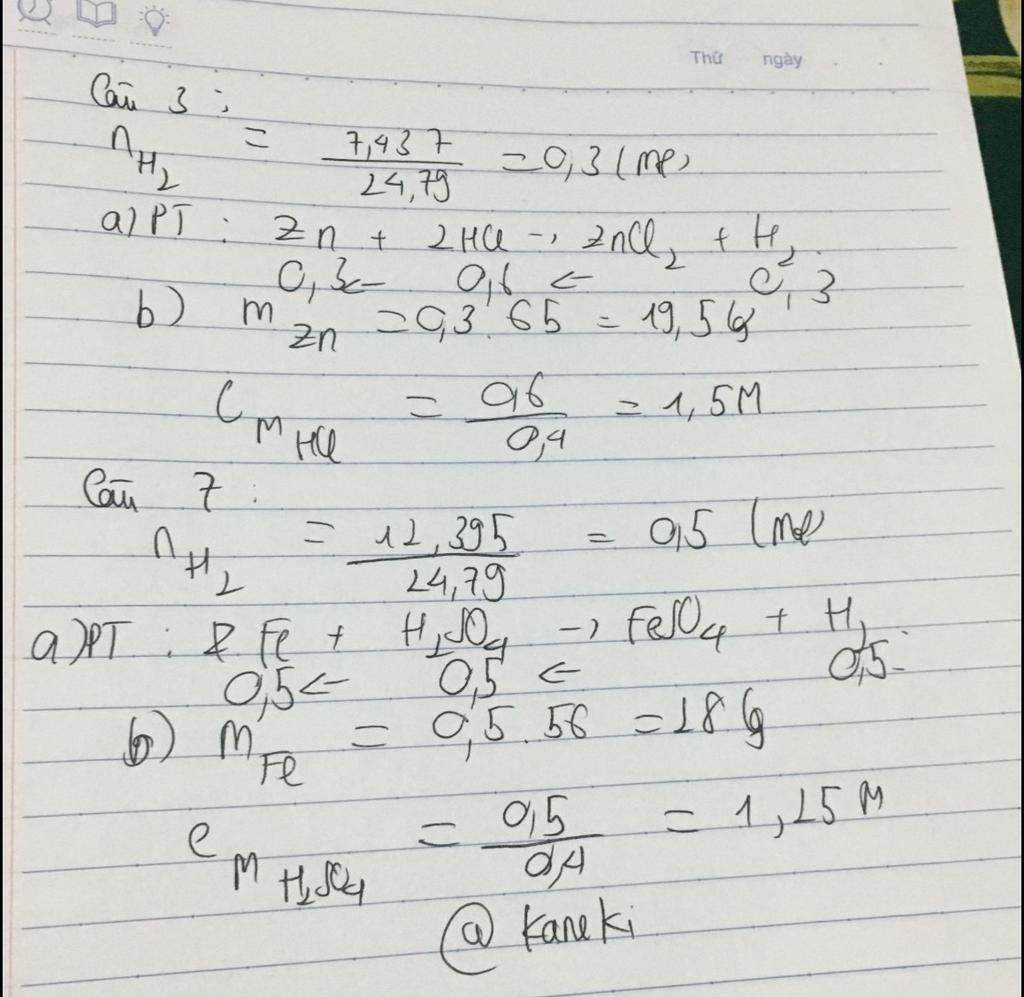 Thứ ngày
Câu 3 :
n H₂ = 7,437 / 24,79 = 0,3 (mol)
a) PT : Zn + 2HCl → ZnCl₂ + H₂
0,3 ← 0,6 ← 0,3
b) m Zn = 0,3 . 65 = 19,5 (g)
C M HCl = 0,6 / 0,4 = 1,5M
Câu 7 :
n H₂ = 12,395 / 24,79 = 0,5 (mol)
a) PT : Fe + H₂SO₄ → FeSO₄ + H₂
0,5 ← 0,5 ← 0,5
b) m Fe = 0,5 . 56 = 28 (g
C M H₂SO₄ = 0,5 / 0,4 = 1,25 M
@ Kaneki